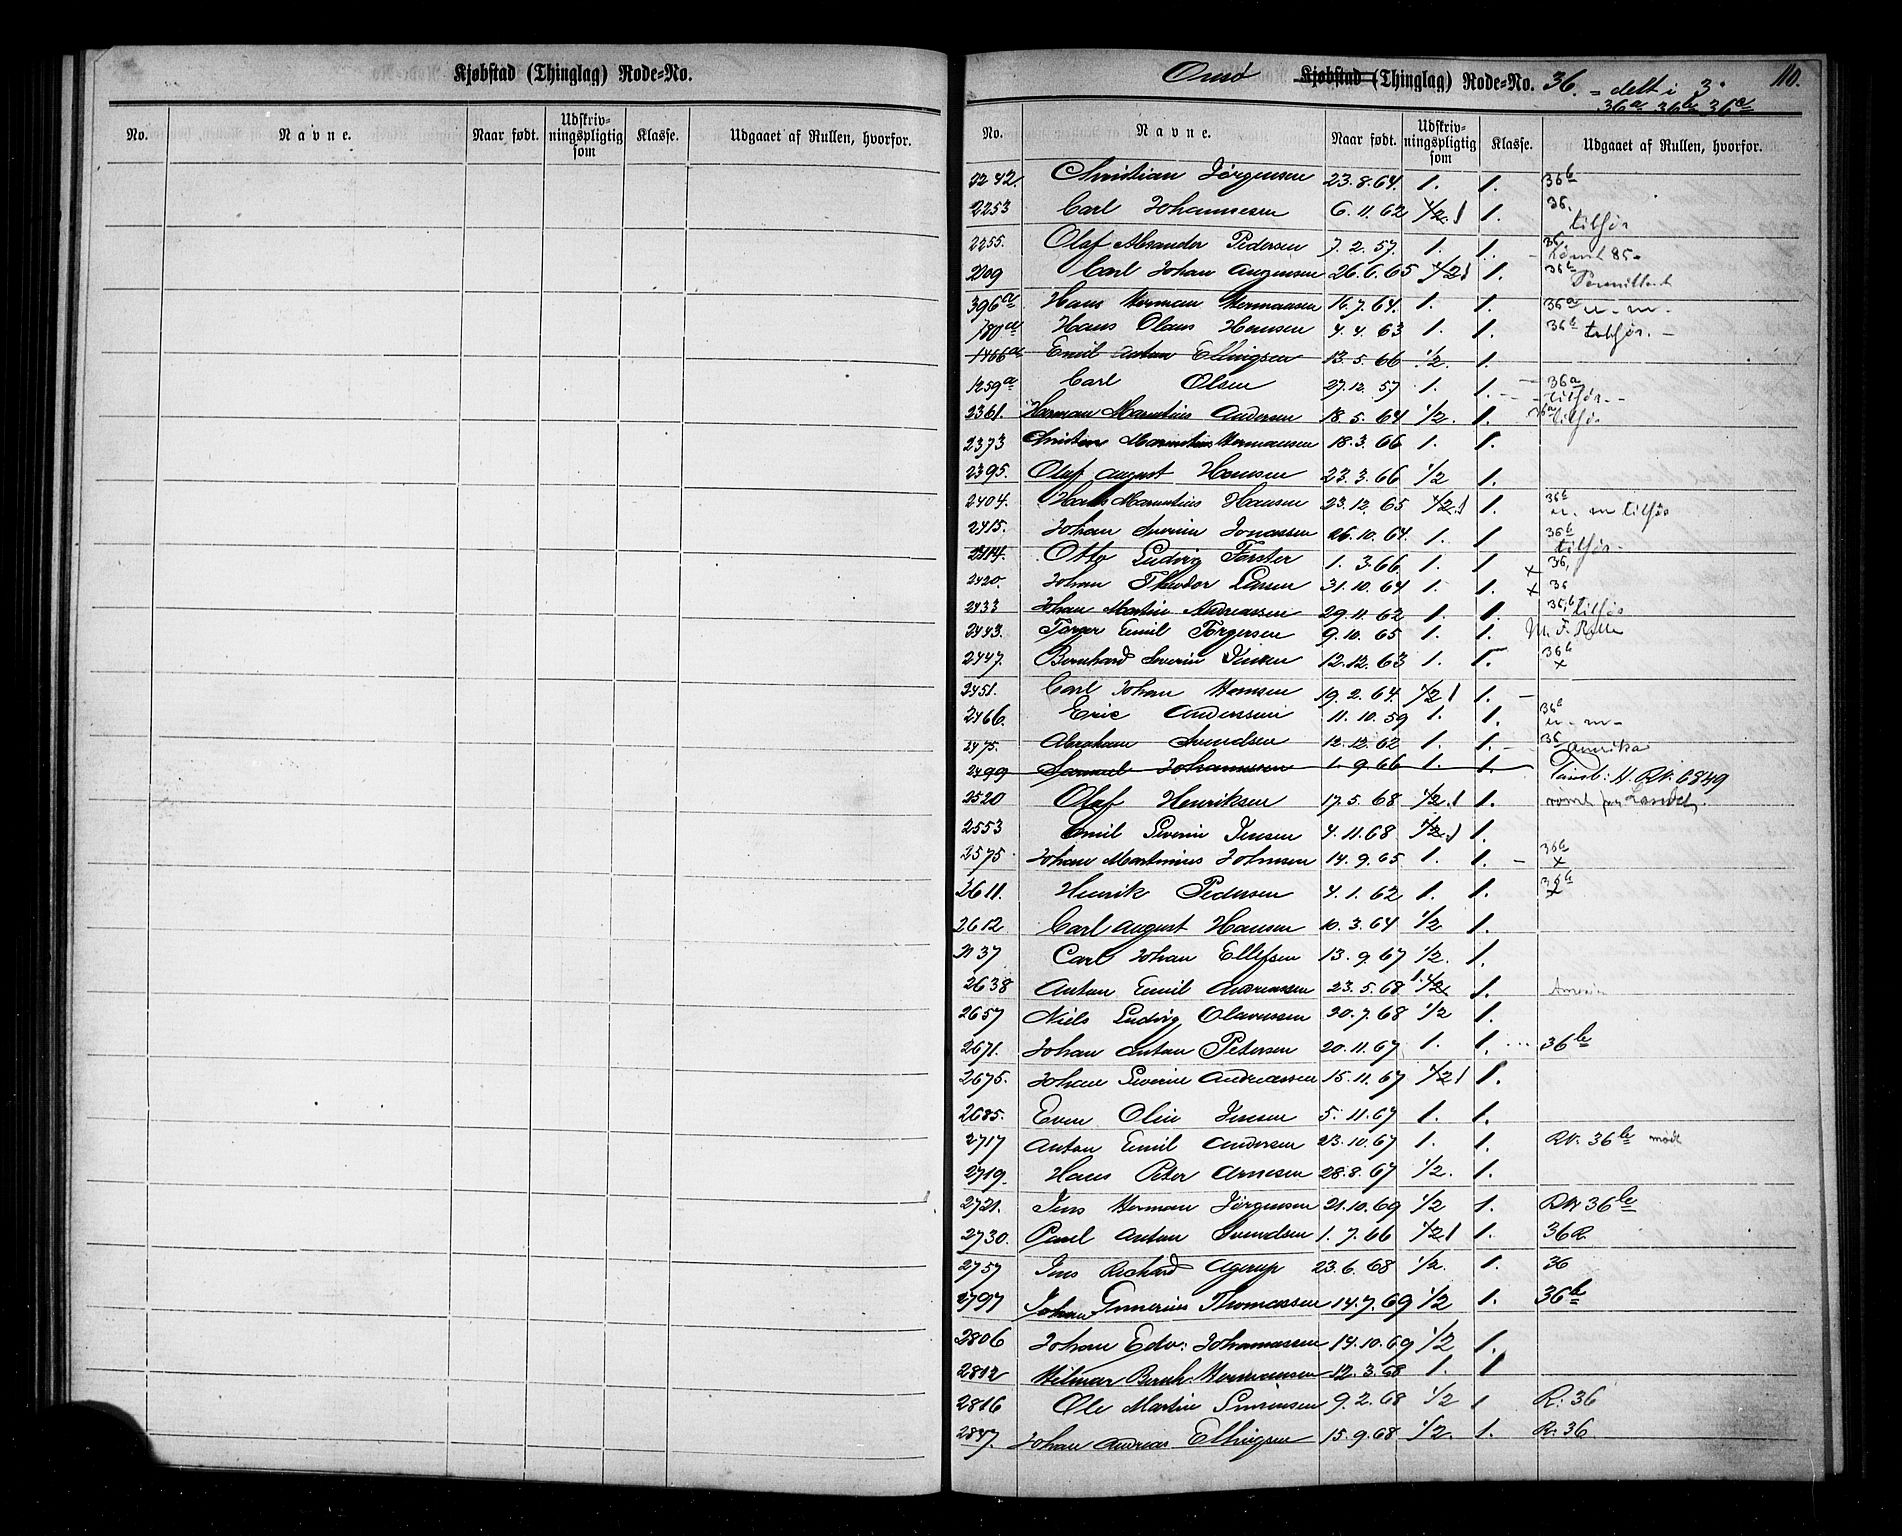 Kjøbstad (Thinglag) Rode-No.
No. Navne. Naar født. Udskriv-ningspligtig som Klasse. Udgaaet af Rullen, hvorfor.
Onsø Kjøbstad (Thinglag) Rode-No. 36. - delt i 3. 110.
36a 36b
No. Navne. Naar født. Udskriv-ningspligtig som Klasse. Udgaaet af Rullen, hvorfor.
2242. Christian Jørgensen 23.8.64. 1. 1. 36b
2253 Carl Johannesen 6.11.62 1/2. 1 1. 36. tilhør
2255. Olaf Alexander Pedersen 7.2.57. 1. 1. 36 Rømt 85-
Carl Johan 26.6.65 1/2 1 1. 36b Permittert
396a Hans Herman Hermansen 16.7.64. 1. 1. 36a u. m.
Hans Olaus Hansen 4.4.63 1. 1. 36b tilhør. -
1466a Emil Anton Ellingsen 13.5.66 1/2. 1.
1259a Carl Olsen 27.12.57 1. 1. 36a tilhør. -
2361. Herman Marentius Andersen 18.5.64 1/2. 1. 36a tilhør
2373 Christian Hermansen 18.3.66 1. 1.
2395. Olaf August Hansen 23.3.66 1/2 1.
2404. Hans Marentius Hansen 23.12.65 1/2. 1 1. 36b u. m tilhør
2415. Johan Severin Jonassen 26.10.64. 1. 1 36b tilhør.
Otto Ludvig Forster 1.3.66. 1. 1 x 36,
2420. Johan Theodor Larsen 31.10.64 1. 1. x 36
2433 Johan Martin Andreassen 29.11.62 1. 1. 36,b tilhør
2443. Torger Emil Torgersen 9.10.65 1. 1. M. F. Rulle
2447. Bernhard Severin Jensen 12.12.63 1. 1. 36b x
2451. Carl Johan 19.2.64. 1/2 1 1. -
2466. Eric Anderssen 11.10.59 1. 1. 36a u. m-
2475. Abraham Svendsen 12.12.62 1. 1. - 36 Amerika
2499 Samuel Johannessen 1.9.66 1. 1. Tønsb: H. RN. 6849
2520 Olaf Henriksen 17.5.68 1/2. 1 1. rømt fra Landet.
2553 Emil Severin Jensen 4.11.68 1/2. 1 1.
2575. Johan Martinius Johnsen 14.9.65 1. 1. - 36b x
2611. Henrik Pedersen 4.1.62 1. 1. 36b x
2612 Carl August Hansen 10.3.64 1/2 1.
Carl Johan Ellefsen 13.9.67 1/2. 1.
2638 Anton Emil Andreassen 23.5.68 1. 1/2 1.
2657 Niels Ludvig Olavessen 20.7.68 1/2 1.
2671. Johan Anton Petersen 20.11.67 1. 1. ... 36b
2675. Johan Severin Andreassen 15.11.67 1/2 1 1.
2685. Even Olin Jensen 5.11.67 1. 1.
2717 Anton Emil Andersen 23.10.67 1. 1. RN. 36b mødt
2719. Hans Peter Arnesen 28.8.67 1/2. 1.
2721. Jens Herman Jørgensen 21.10.69 1/2 1. RN 36b
2730. Paul Anton Svendsen 1.7.66 1/2 1 1. 36 R.
2757 Jens Richard Agerup 23.6.68 1/2. 1. 36
2797 Johan Gunerius Thomassen 14.7.69 1/2 1. 36b
2806 Johan Edv: Johannessen 14.10.69 1/2 1.
2812 Hilmar Bernh. Hermansen 12.3.68 1. 1
2816 Ole Martin Simensen 9.2.68 1/2 1 R: 36
2847. Johan Andreas Ellingsen 15.9.68 1/2. 1. R. 36